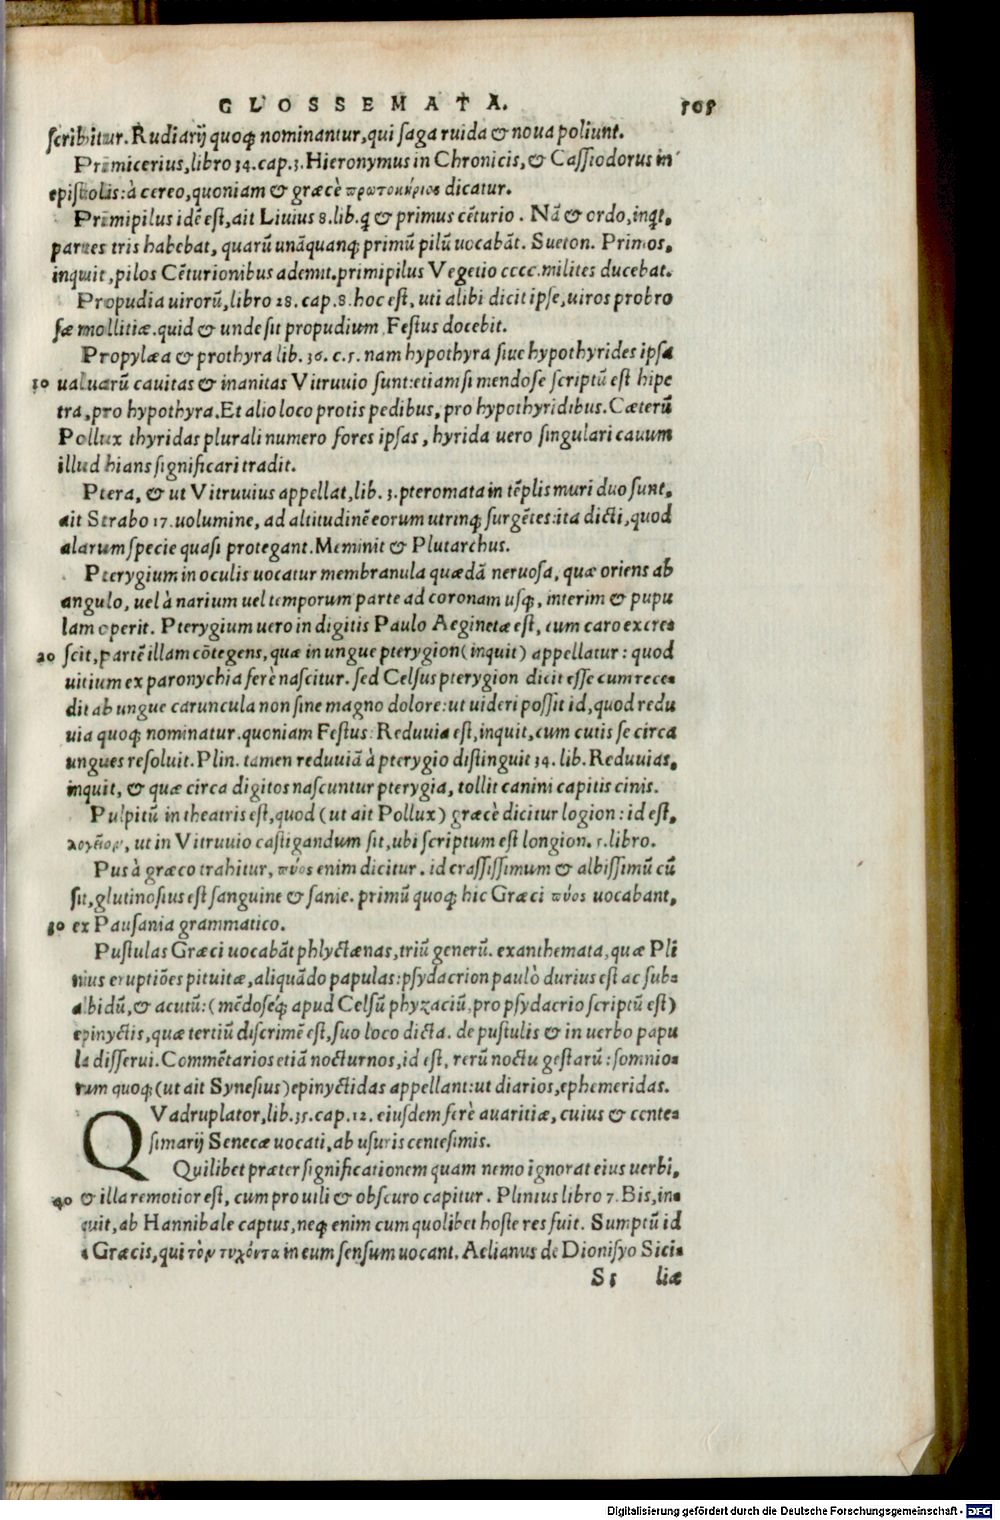 GLOSSEMATA. 505
scribitur. Rudiarij quoq; nominantur, qui saga ruida & noua poliunt.
Primicerius, libro 34. cap. 3. Hieronymus in Chronicis, & Cassiodorus in
epistolis: à cereo, quoniam & græcè πρωτοκήριος dicatur.
Primipilus idē est, ait Liuius 8. lib. q & primus cēturio. Nā & ordo, inqt,
partes tris habebat, quarū unāquanq; primū pilū uocabāt. Sueton. Primos,
inquit, pilos Cēturionibus ademit. primipilus Vegetio cccc. milites ducebat.
Propudia uirorū, libro 28. cap. 8. hoc est, uti alibi dicit ipse, uiros probro
sæ mollitiæ. quid & unde sit propudium Festus docebit.
Propylæa & prothyra lib. 36. c. 5. nam hypothyra siue hypothyrides ipsa
10 ualuarū cauitas & inanitas Vitruuio sunt: etiamsi mendose scriptū est hipe
tra, pro hypothyra. Et alio loco protis pedibus, pro hypothyridibus. Cæterū
Pollux thyridas plurali numero fores ipsas, hyrida uero singulari cauum
illud hians significari tradit.
Ptera, & ut Vitruuius appellat, lib. 3. pteromata in tēplis muri duo sunt,
ait Strabo 17. uolumine, ad altitudinē eorum utrinq; surgētes: ita dicti, quod
alarum specie quasi protegant. Meminit & Plutarchus.
Pterygium in oculis uocatur membranula quædā neruosa, quæ oriens ab
angulo, uel à narium uel temporum parte ad coronam usq;, interim & pupu
lam operit. Pterygium uero in digitis Paulo Aeginetæ est, cum caro excre=
20 scit, partē illam cōtegens, quæ in ungue pterygion (inquit) appellatur: quod
uitium ex paronychia ferè nascitur. sed Celsus pterygion dicit esse cum rece=
dit ab ungue caruncula non sine magno dolore: ut uideri possit id, quod redu
uia quoq; nominatur. quoniam Festus: Reduuia est, inquit, cum cutis se circa
ungues resoluit. Plin. tamen reduuiā à pterygio distinguit 34. lib. Reduuias,
inquit, & quæ circa digitos nascuntur pterygia, tollit canini capitis cinis.
Pulpitū in theatris est, quod (ut ait Pollux) græcè dicitur logion: id est,
λογεῖον, ut in Vitruuio castigandum sit, ubi scriptum est longion. 5. libro.
Pus à græco trahitur, πύος enim dicitur. id crassissimum & albissimū cū
sit, glutinosius est sanguine & sanie. primū quoq; hic Græci πύος uocabant,
30 ex Pausania grammatico.
Pustulas Græci uocabāt phlyctænas, triū generū. exanthemata, quæ Pli
nius eruptiōes pituitæ, aliquādo papulas: psydacrion paulò durius est ac sub=
albidū, & acutū: (mēdoseq́; apud Celsū phyzaciū, pro psydacrio scriptū est)
epinyctis, quæ tertiū discrimē est, suo loco dicta. de pustulis & in uerbo papu
la disserui. Commētarios etiā nocturnos, id est, rerū noctu gestarū: somnio=
rum quoq; (ut ait Synesius) epinyctidas appellant: ut diarios, ephemeridas.
QVadruplator, lib. 35. cap. 12. eiusdem ferè auaritiæ, cuius & cente=
simarij Senecæ uocati, ab usuris centesimis.
Quilibet præter significationem quam nemo ignorat eius uerbi,
40 & illa remotior est, cum pro uili & obscuro capitur. Plinius libro 7. Bis, in=
quit, ab Hannibale captus, neq; enim cum quolibet hoste res fuit. Sumptū id
à Græcis, qui τὸν τυχόντα in eum sensum uocant. Aelianus de Dionisyo Sici=
Ss liæ
Digitalisierung gefördert durch die Deutsche Forschungsgemeinschaft - DFG